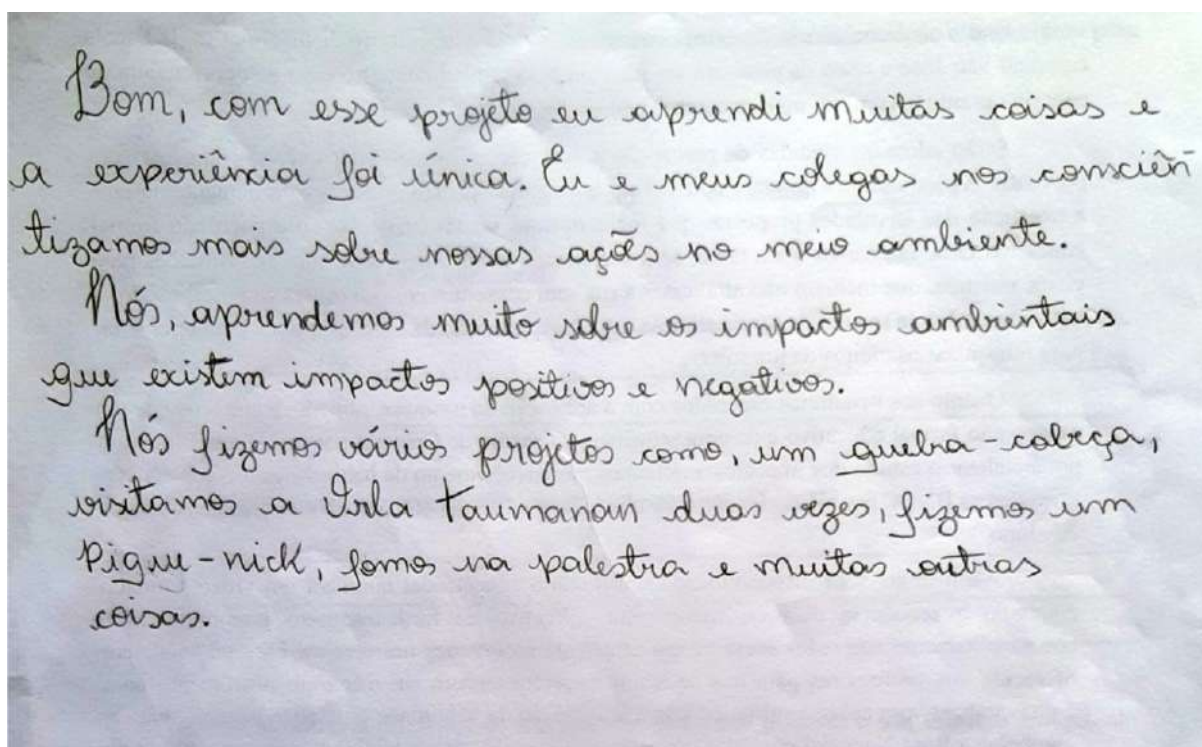 Bom, com esse projeto eu aprendi muitas coisas e
a experiência foi única. Eu e meus colegas nos consciên
tizamos mais sobre nossas ações no meio ambiente.
Nós, aprendemos muito sobre os impactos ambientais
que existem impactos positivos e negativos.
Nós fizemos vários projetos como, um quebra-cabeça,
visitamos a Orla Taumanan duas vezes, fizemos um
Pique-nick, fomos na palestra e muitas outras
coisas.